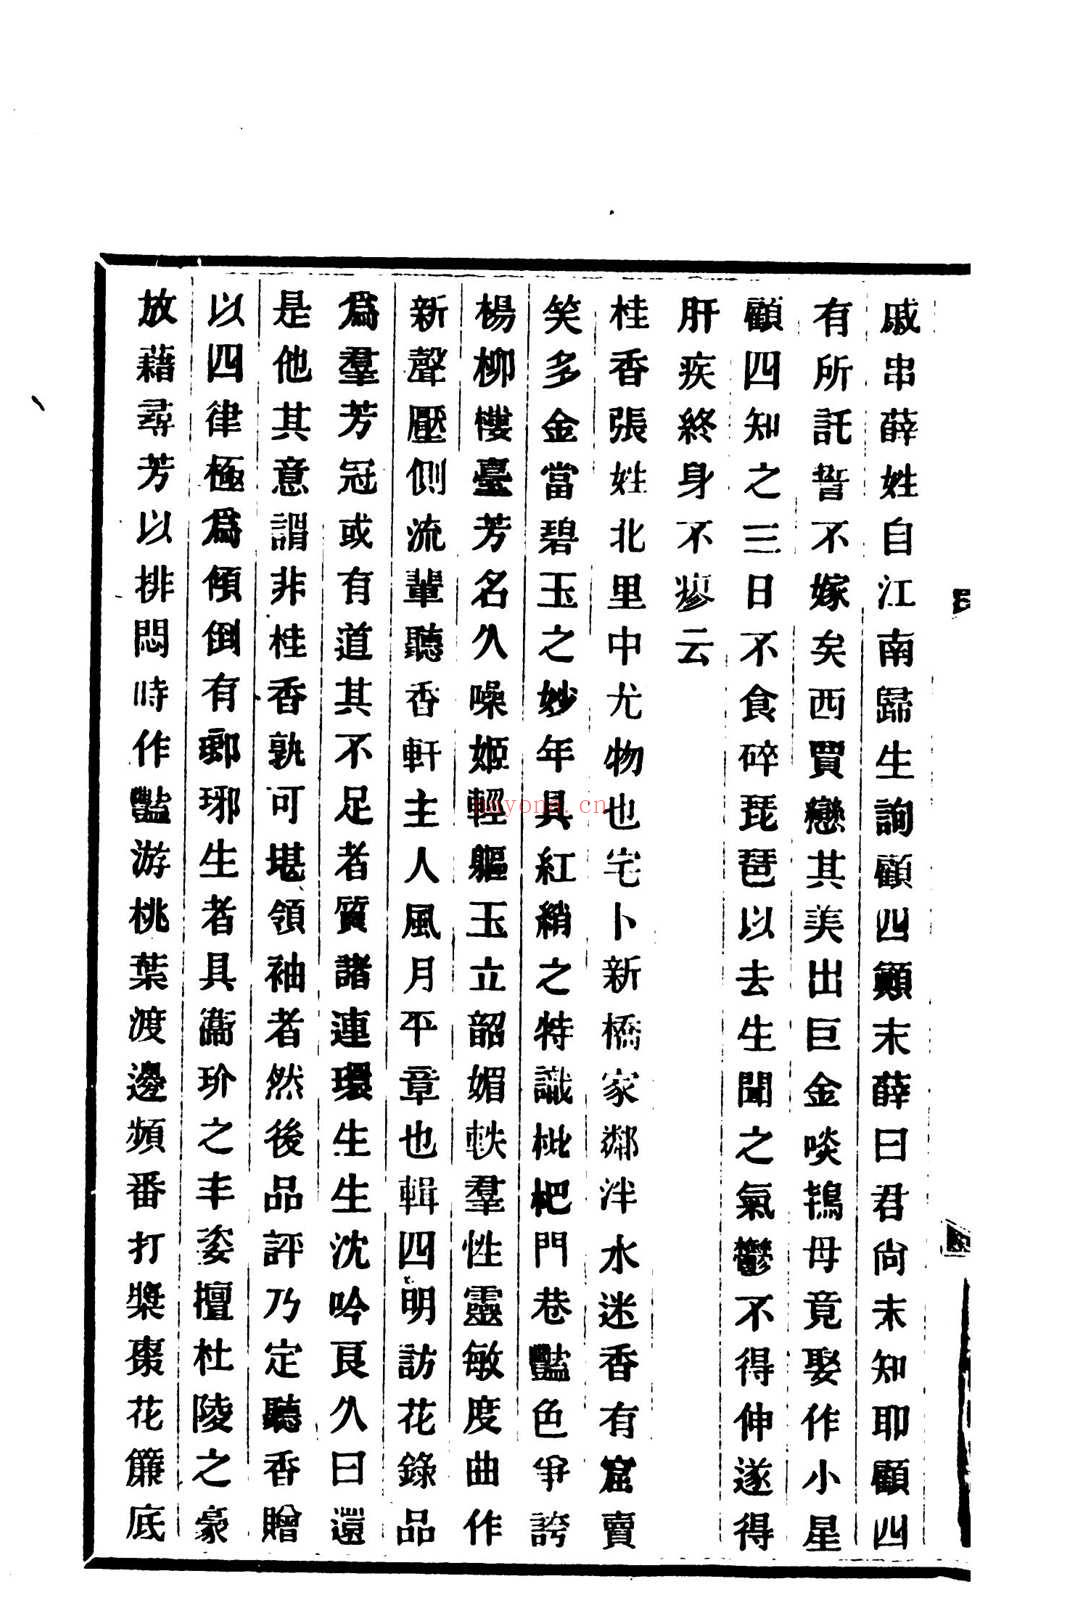 戚串薛姓自江南歸生詢顧四顛末薛曰君尙未知耶顧四
有所託誓不嫁矣西賈戀其美出巨金啖鴇母竟娶作小星
顧四知之三日不食碎琵琶以去生聞之氣鬱不得伸遂得
肝疾終身不瘳云
桂香張姓北里中尤物也宅卜新橋家鄰泮水迷香有窟賣
笑多金當碧玉之妙年具紅綃之特識枇杷門巷豔色爭誇
楊柳樓臺芳名久噪姬輕軀玉立韶媚軼羣性靈敏度曲作
新聲壓側流輩聽香軒主人風月平章也輯四明訪花錄品
爲羣芳冠或有道其不足者質諸連環生生沈吟良久曰還
是他其意謂非桂香孰可堪領袖者然後品評乃定聽香贈
以四律極爲傾倒有瑯琊生者具璚玠之丰姿擅杜陵之豪
放藉尋芳以排悶時作豔游桃葉渡邊頻番打槳棗花簾底
noyona.cn